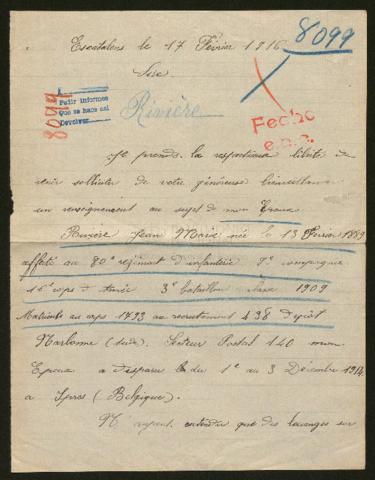 Escatalens le 17 Février 1916
8099
Sire
8099
Pedir informes
Que se hace así
Devolver
Rivière
Fecho
Je prends la respectueuse liberté de
venir solliciter de votre généreuse bienveillance
un renseignement au sujet de mon Epoux
Jean Marie née le 13 Février 1889
affecté au 80e régiment d'infanterie 9e compagnie
16e corps d'Armée 3e bataillon classe 1909
Matricule au corps 1793 au recrutement 438 Dépôt
Narbonne (Aude). Secteur Postal 140 mon
Epoux a disparu le du 1e au 3 Décembre 1914
a Ypres (Belgique).
N'ayant entendu que des louanges sur